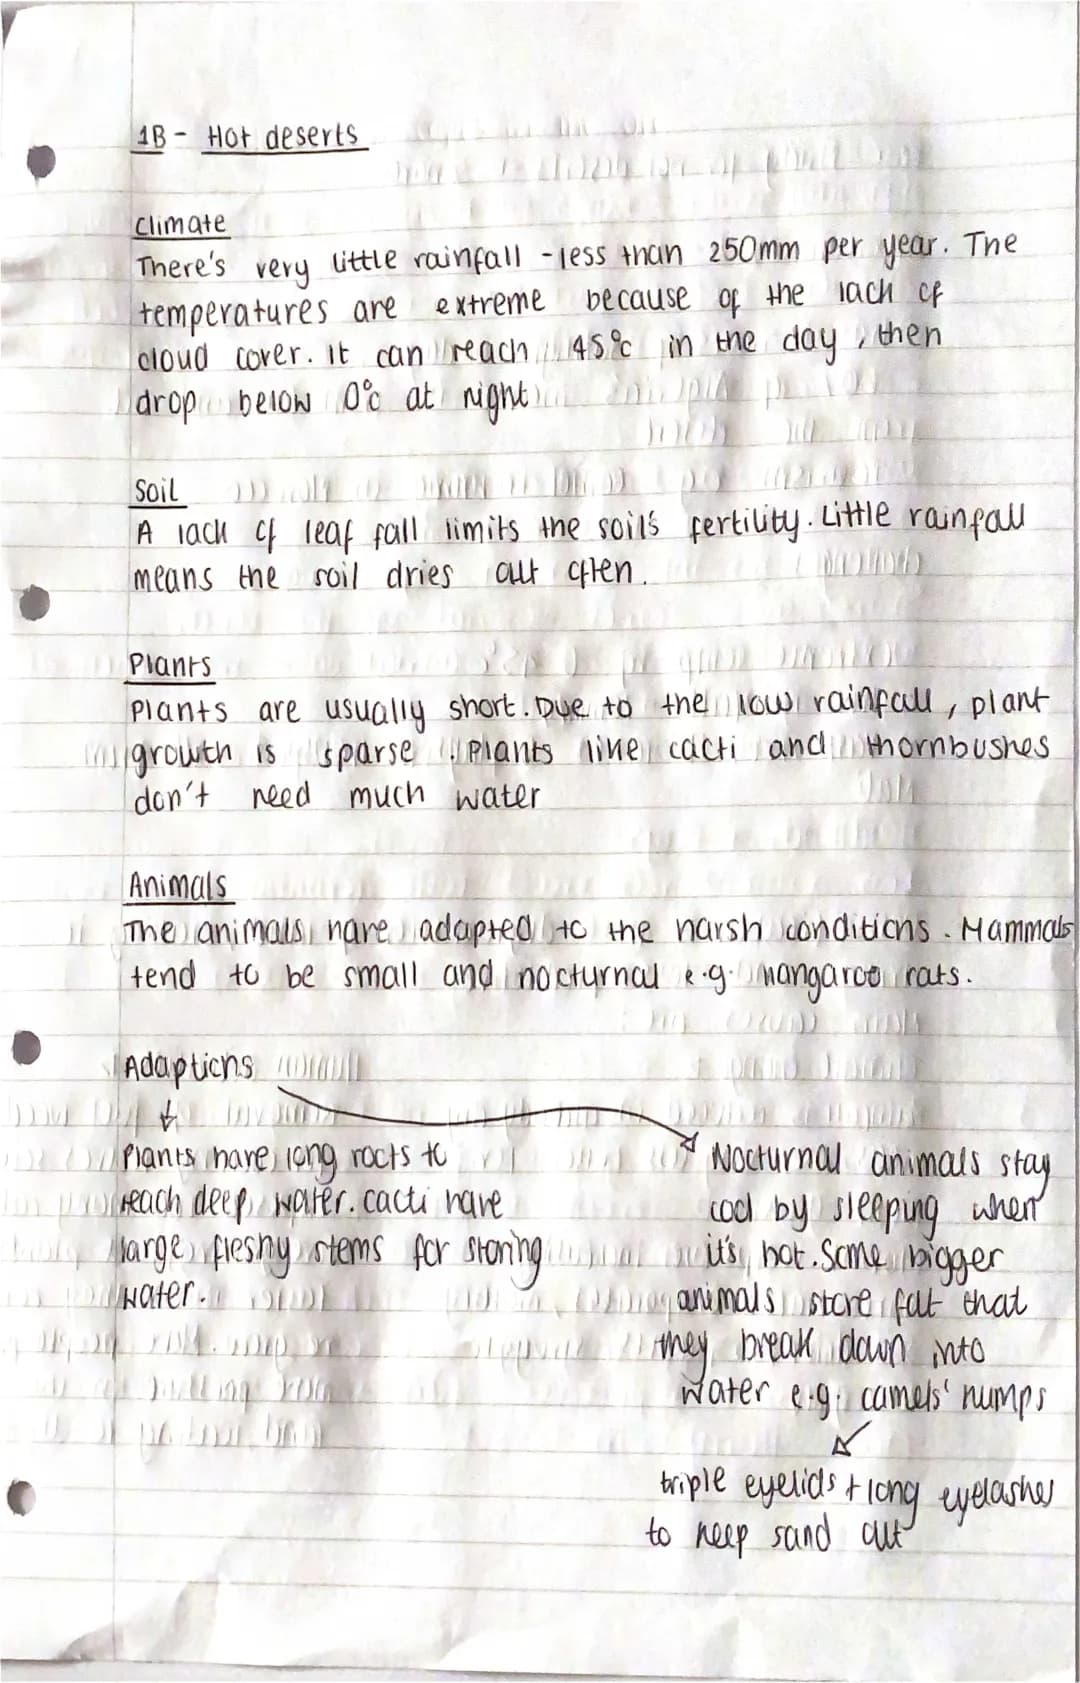 1B - Hot deserts
Climate
There's very little rainfall - less than 250mm per year. The
temperatures are extreme because of the lack of
cloud cover. It can reach 45°c in the day, then
drop below 0°c at night
Soil
A lack of leaf fall limits the soil's fertility. Little rainfall
means the soil dries out often.
Plants
Plants are usually short. Due to the low rainfall, plant
growth is sparse. Plants like cacti and thornbushes
don't need much water
Animals
The animals have adapted to the harsh conditions. Mammals
tend to be small and nocturnal e.g. kangaroo rats.
Adaptions
Plants have long roots to
reach deep water. cacti have
large, fleshy stems for storing
water.
Nocturnal animals stay
cool by sleeping when
it's hot. Some bigger
animals store fat that
they break down into
water e.g. camels' humps
triple eyelids + long eyelashes
to keep sand out